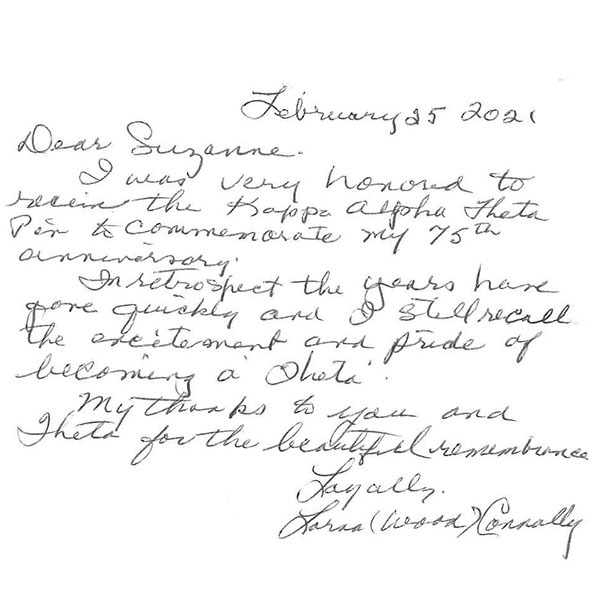 February 25 2021
Dear Suzanne.
I was very honored to
receive the Kappa Alpha Theta
Pin to commemorate my 75th
anniversary.
In retrospect the years have
gone quickly and I still recall
the excitement and pride of
becoming a "Theta".
My thanks to you and
Theta for the beautiful remembrance
Loyally.
(Wood) Connally